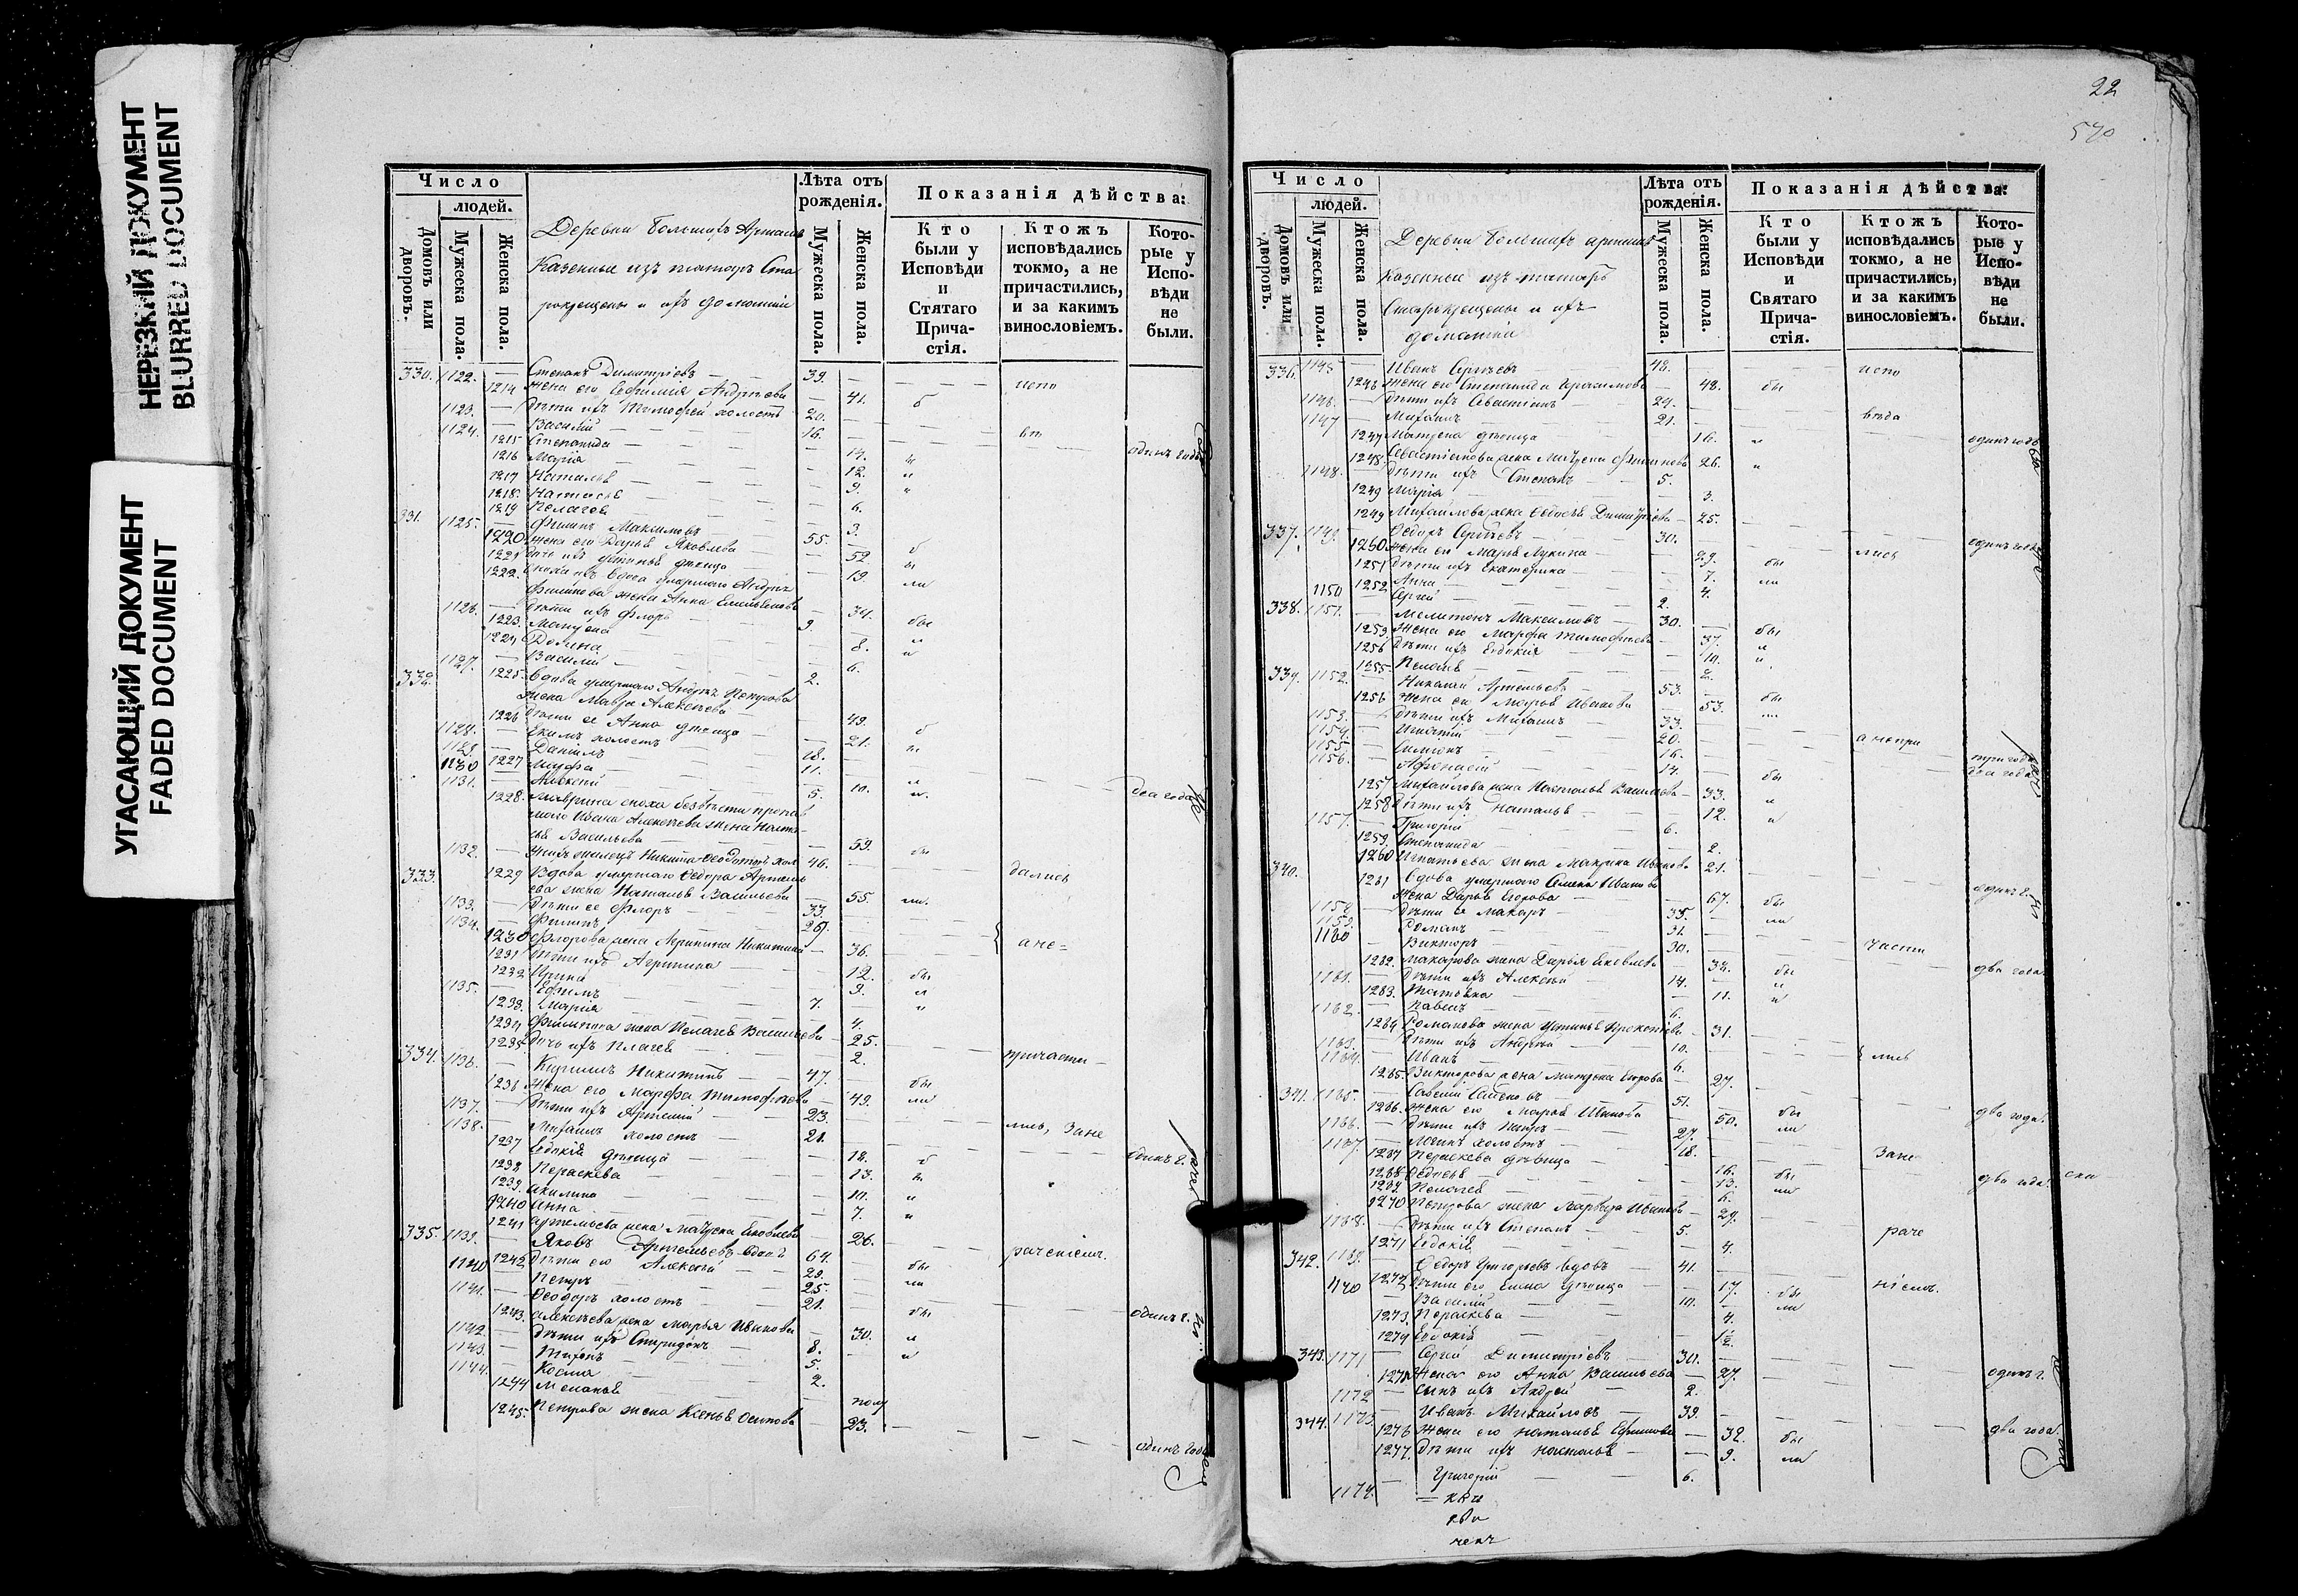 НЕРЕЗКИЙ ДОКУМЕНТ
BLURRED DOCUMENT
УГАСАЮЩИЙ ДОКУМЕНТ
FADED DOCUMENT
Число
людей.
Домовъ или дворовъ.
Мужеска пола.
Женска пола.
Лѣта отъ рожденія.
Мужеска пола.
Женска пола.
Показанія дѣйства:
Кто были у Исповѣди и Стятаго Прича-стія.
Ктожъ исповѣдались токмо, а не причастились, и за какимъ винословіемъ.
Кото-рые у Испо-вѣди не были.
Деревни Большихъ
Казенные изъ татаръ Ста
рокрещены и ихъ домашніе
330. 1122. — Степанъ Димитріевъ — 39.
1214 жена его Евфимія Андреева — 41.
1123. — дѣти ихъ Тимофей холостъ 20.
1124. — Василій — 16.
1215 Степанида — 14.
1216 Марія — 12.
1217 Наталья — 9.
1218. Настасья — 6.
1219 Пелагея — 3.
331. 1125. — Филипъ Максимовъ 55.
1220 жена его Дарья Яковлева — 52.
1221 дочь ихъ Устинья дѣвица — 19.
1222. Сноха ихъ вдова умершаго Андрея
Филипова жена Анна Емельянова 34.
1126. — дѣти ихъ Флоръ 9.
1223. Матрена — 8.
1224 — 6.
1127. — Василій — 2.
332. 1225. вдова умершаго Андрея Петрова
жена Мавра Алексѣева — 49.
1226 дѣти ее Анна дѣвица — 21.
1128. — Екимъ холостъ 18.
1129. — Даніилъ 11.
1130 1227 — 10.
1131. — Алексѣй 5.
1228. Маврина сноха безвѣсти пропав
шаго Ивана Алексѣева жена Наста
сья Васильева — 59.
1132. — Никита Ѳедотовъ хол 46.
333. 1229 Вдова умершаго Ѳедора Артемь
ева жена Наталья Васильева 55.
1133. — дѣти ее Флоръ — 33.
1134. — Филипъ — 26.
1230 Флорова жена Агрипина Никитина — 36.
1231 дѣти ихъ Агрипина — 12.
1232. Ирина — 9.
1135. — Ефимъ — 7.
1233. Марія — 4.
1234 Филипова жена Пелагея Васильева — 25.
1235. дочь ихъ Пелагея — 2.
334. 1136. — Кирилъ Никитинъ — 47.
1236 жена его Марфа Тимофеева — 49.
1137. — дѣти ихъ Артемій 23.
1138. — Михаилъ холостъ — 21.
1237 Евдокія дѣвица — 18.
1238 Параскева — 13.
1239. Акилина — 10.
1240 Анна — 7.
1241 Артемьева жена Матрена Яковлева 26.
335. 1139. — Яковъ Артемьевъ вдовъ 64.
1140 1242 дѣти его Алексѣй — 29.
Петръ — 25.
1141. — Ѳеодоръ холостъ — 21.
1243. Алексѣева жена Марья Иванова 30.
1142. — дѣти ихъ Спиридонъ — 8.
1143. — Тихонъ — 5.
1144. — Косма — 2.
1244 Меланья — полу
1245. Петрова жена Ксенья Осипова 23.
испо
одинъ годъ
два года
дались
а не=
причасти—
лись, Зане
раченіемъ.
одинъ г.
одинъ г.
одинъ годъ
22
570
Число
людей.
Домовъ или дворовъ.
Мужеска пола.
Женска пола.
Лѣта отъ рожденія.
Мужеска пола.
Женска пола.
Показанія дѣйства:
Кто были у Исповѣди и Святаго Прича-стія.
Ктожъ исповѣдались токмо, а не причастились, и за какимъ винословіемъ.
Кото-рые у Испо-вѣди не были.
Деревни Большихъ
Казенные изъ татаръ
Старокрещены и ихъ
домашніе
336. 1145 — Иванъ Сергѣевъ — 48.
1246 жена его Степанида Герасимова — 48.
1146. — дѣти ихъ Севастіянъ 24.
1147 — Михаилъ — 21.
1247 Матрена дѣвица — 16.
1248. Севастіянова жена Матрена Филипова 26.
1148. — дѣти ихъ Степанъ — 5.
1249 Марія — 3.
1249 Михаилова жена Ѳедосья Димитріева — 25.
337. 1149. — Ѳедоръ Сергѣевъ — 30.
1250 жена его Марья Лукина — 29.
1251 дѣти ихъ Екатерина — 7.
1252 Анна — 4.
1150 — Сергѣй — 2.
338. 1151. — Мелитонъ Максимовъ — 30.
1253. Жена его Марфа Тимофеева — 37.
1256 дѣти ихъ Евдокія — 10.
1255. Пелагея — 2.
339. 1152. — Николай Артемьевъ — 53.
1256 жена его Марья Иванова 53.
1153. — дѣти ихъ Михаилъ — 33.
1154. — Игнатій — 20.
1155. — Симеонъ — 16.
1156. — Афонасій — 14.
1257 Михайлова жена Наталья Васильева 33.
1258 дѣти ихъ Наталья — 12.
1157. — Григорій — 6.
1259. Степанида — 2.
1260 Игнатьева жена Макрина Иванова 21.
340. 1261 вдова умершаго Семена Иванова
жена Дарья Егорова — 67.
1158. — дѣти ее Макаръ — 35.
1159. — Романъ — 31.
1160 — Викторъ — 30.
1262. Макарова жена Дарья Яковлева 34.
1161. — дѣти ихъ Алексѣй — 14.
1263. — 11.
1162. — Павелъ — 6.
1264. Романова жена Устинья — 31.
1163. — дѣти ихъ Андрей — 10.
1164. — Иванъ — 6.
1265. Викторова жена Матрена Егорова — 27.
341. 1165. — Савелій Семеновъ — 51.
1266. жена его Марья Иванова — 50.
1166. — дѣти ихъ Петръ — 27.
1167. — холостъ — 18.
1267 Параскева дѣвица — 16.
1268. Ѳедосья — 13.
1269. Пелагея — 6.
1270 Петрова жена Марфа Иванова — 29.
1168. — дѣти ихъ Степанъ — 5.
1271 Евдокія — 4.
342. 1169. — Ѳедоръ Григорьевъ вдовъ — 41.
1272 дѣти его Елена дѣвица — 17.
1170 — Василій — 10.
1273. Параскева — 4.
1274 Евдокія — 1½
343. 1171 — Сергѣй Димитріевъ 30.
1275 Жена его Анна Васильева — 27.
1172 — сынъ ихъ Андрей — 2.
344. 1173. — Иванъ Михайловъ — 39.
1276 Жена его Наталья Ефимова — 32.
1277. дѣти ихъ Наталья — 9.
1174. — Григорій — 6.
испо
вѣда
лись
а не при
части
лись
Зане
раче
ніемъ.
одинъ годъ
одинъ годъ
три года
два года
одинъ г.
два года.
два года.
два года.
одинъ г.
два года.